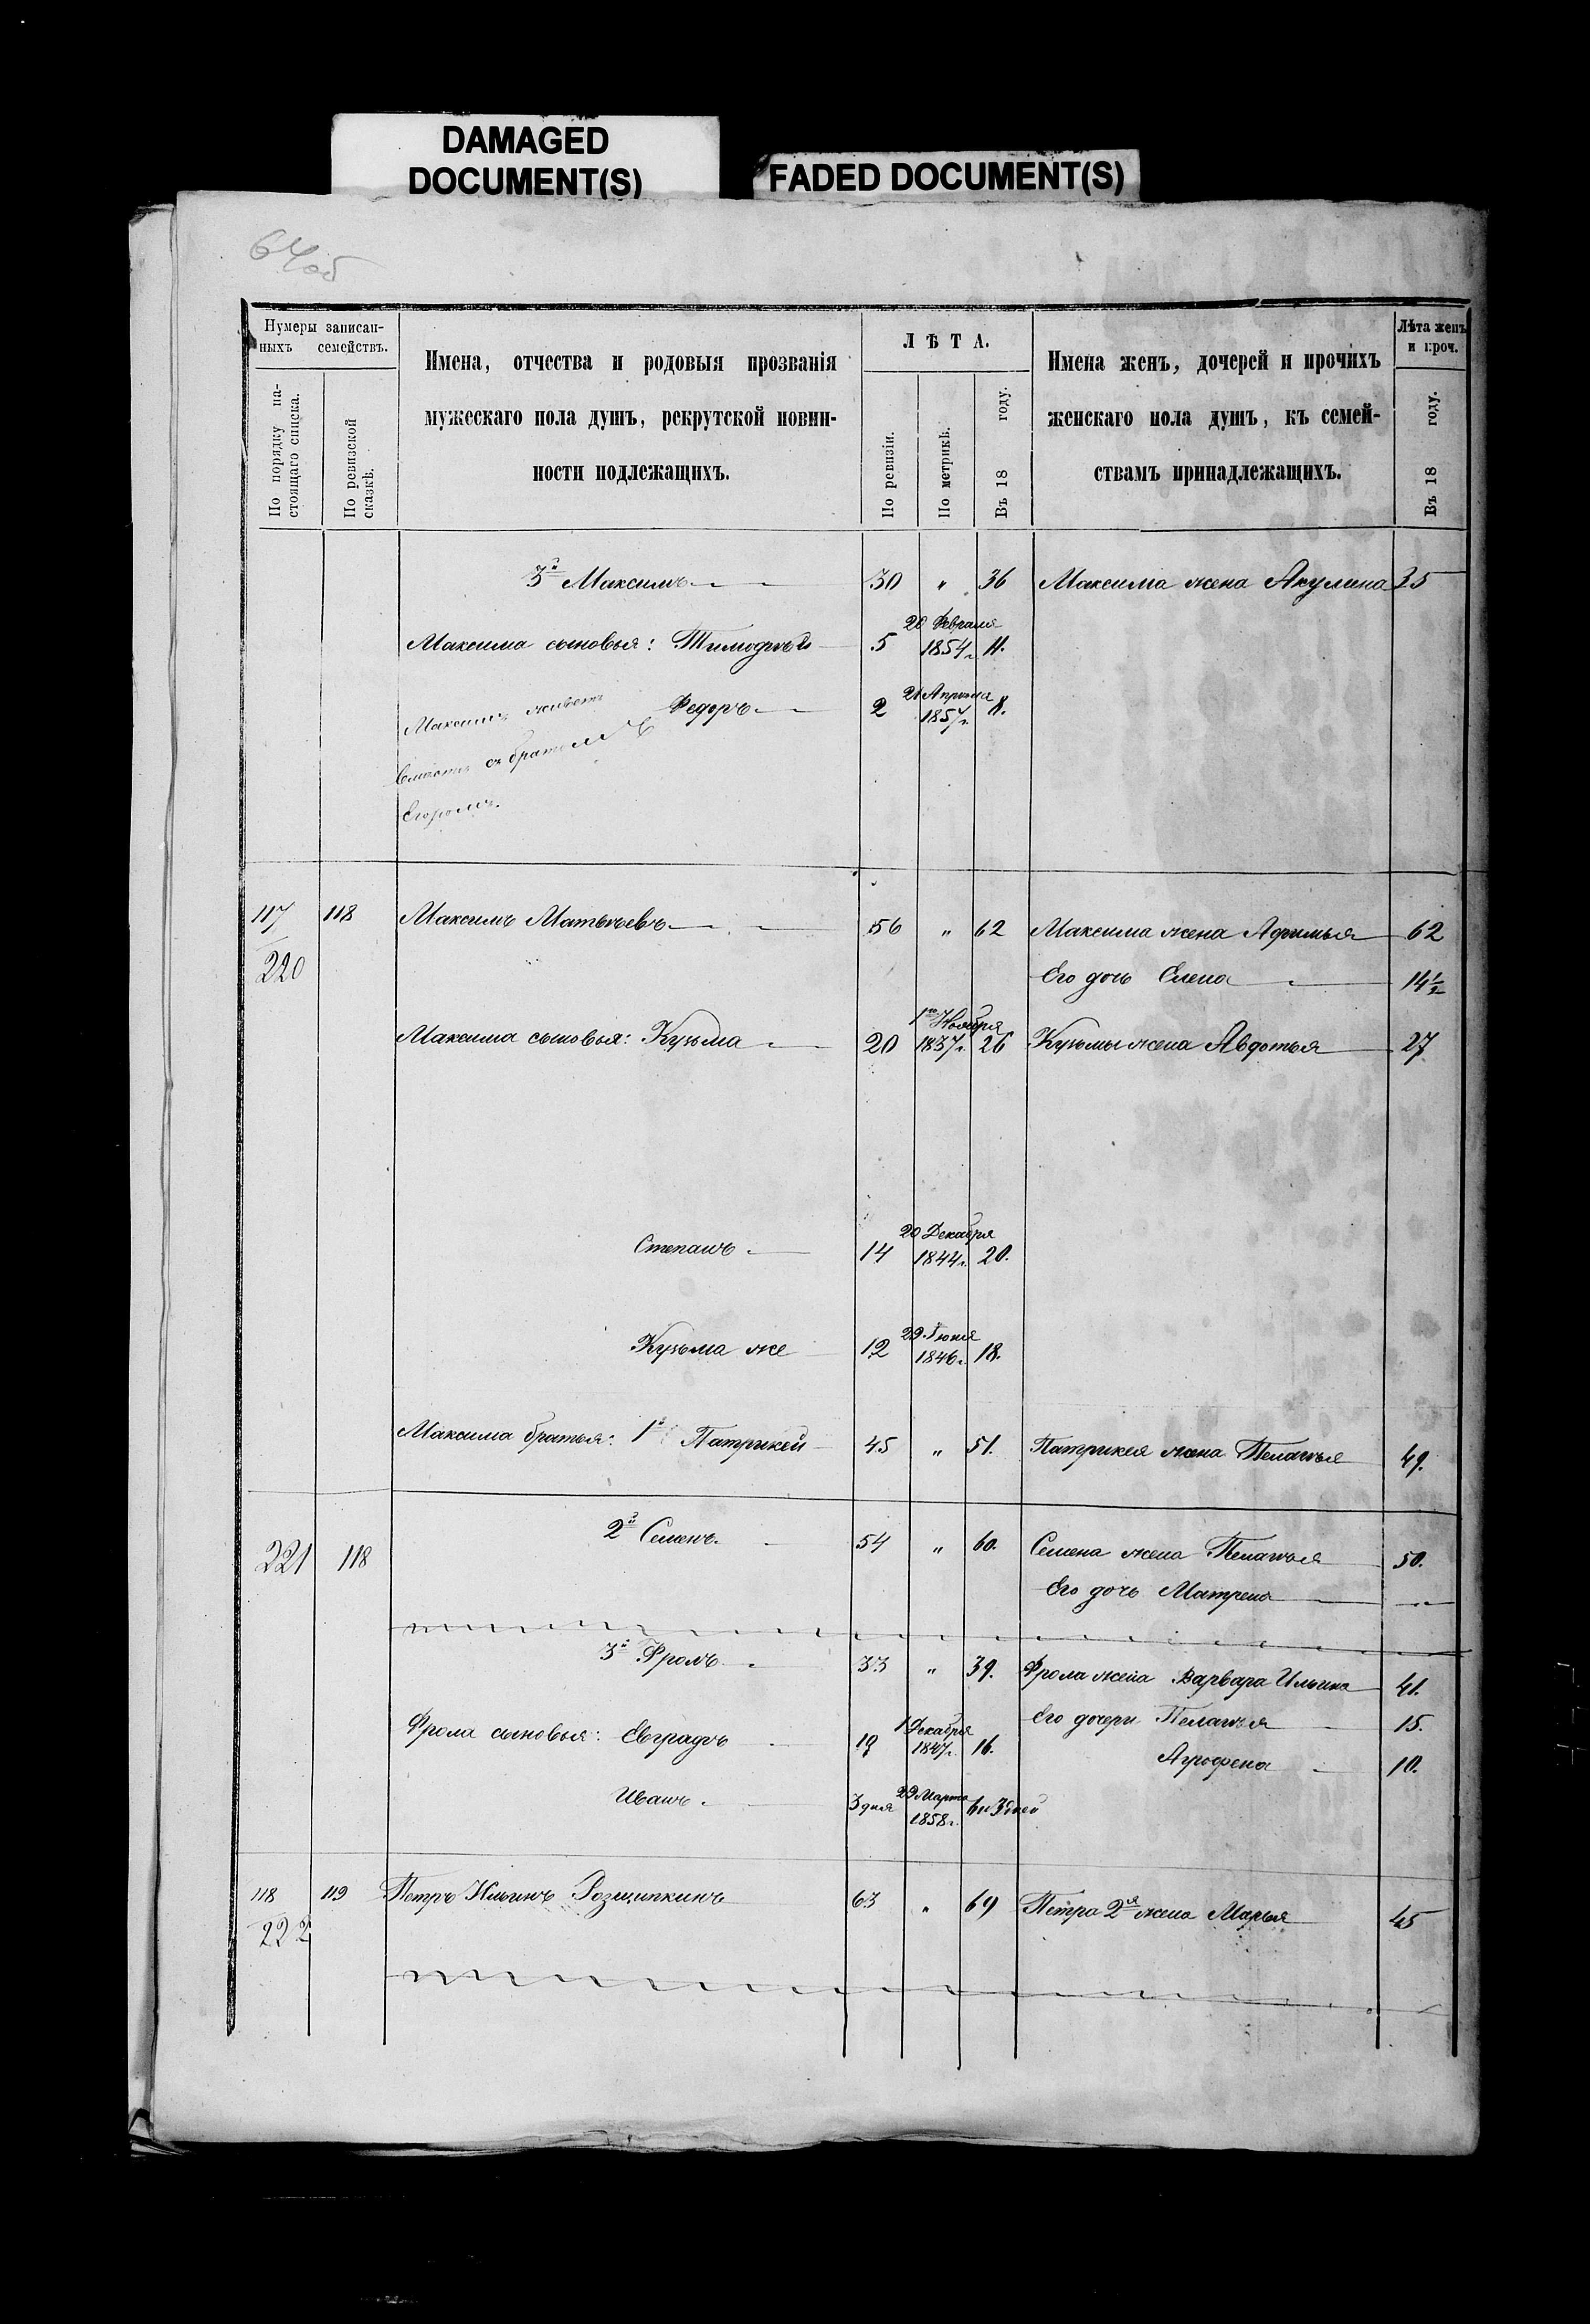 DAMAGED
DOCUMENT(S)
FADED DOCUMENT(S)
64об
Нумеры записан-
ныхъ семействъ.
По порядку на-
стоящаго списка.
По ревизской
сказкѣ.
Имена, отчества и родовыя прозванія
мужескаго пола душъ, рекрутской повин-
ности подлежащихъ.
ЛѢТА.
По ревизіи.
По метрикѣ.
Въ 18 году.
Имена женъ, дочерей и прочихъ
женскаго пола душъ, къ семей-
ствамъ принадлежащихъ.
Лѣта женъ
и проч.
Въ 18 году.
3й Максимъ 30 " 36 Максима жена Акулина 35
28 Февраля
Максима сыновья: Тимофѣй 5 1854г. 11.
21 Апрѣля
Федоръ 2 1857г. 8.
Максимъ живетъ
вмѣстѣ съ братомъ
Егоромъ.
117 118 Максимъ Матвѣевъ 56 " 62 Максима жена Афимья 62
220 Его дочь Елена 14½
1го Ноября
Максима сыновья: Кузьма 20 1837г. 26 Кузьмы жена Авдотья 27
20 Декабря
Степанъ 14 1844г. 20.
29 Іюня
Кузьма же 12 1846г. 18.
Максима братья: 1й Патрикей 45 " 51. Патрикея жена Пелагѣя 49.
221 118 2й Семенъ. 54 " 60. Семена жена Пелагѣя 50.
Его дочь Матрена "
3й Фролъ 33 " 39. Фрола жена Варвара Ильина 41.
Его дочери Пелагѣя 15.
1 Декабря
Фрола сыновья: Евграфъ 1847г. 16.
Агрофена 10.
29 Марта
Иванъ. 3 дня 1858г. 6 и 3 дней
118 119 Петръ Ильинъ Розщипкинъ 63 " 69 Петра 2я жена Марья 45
222